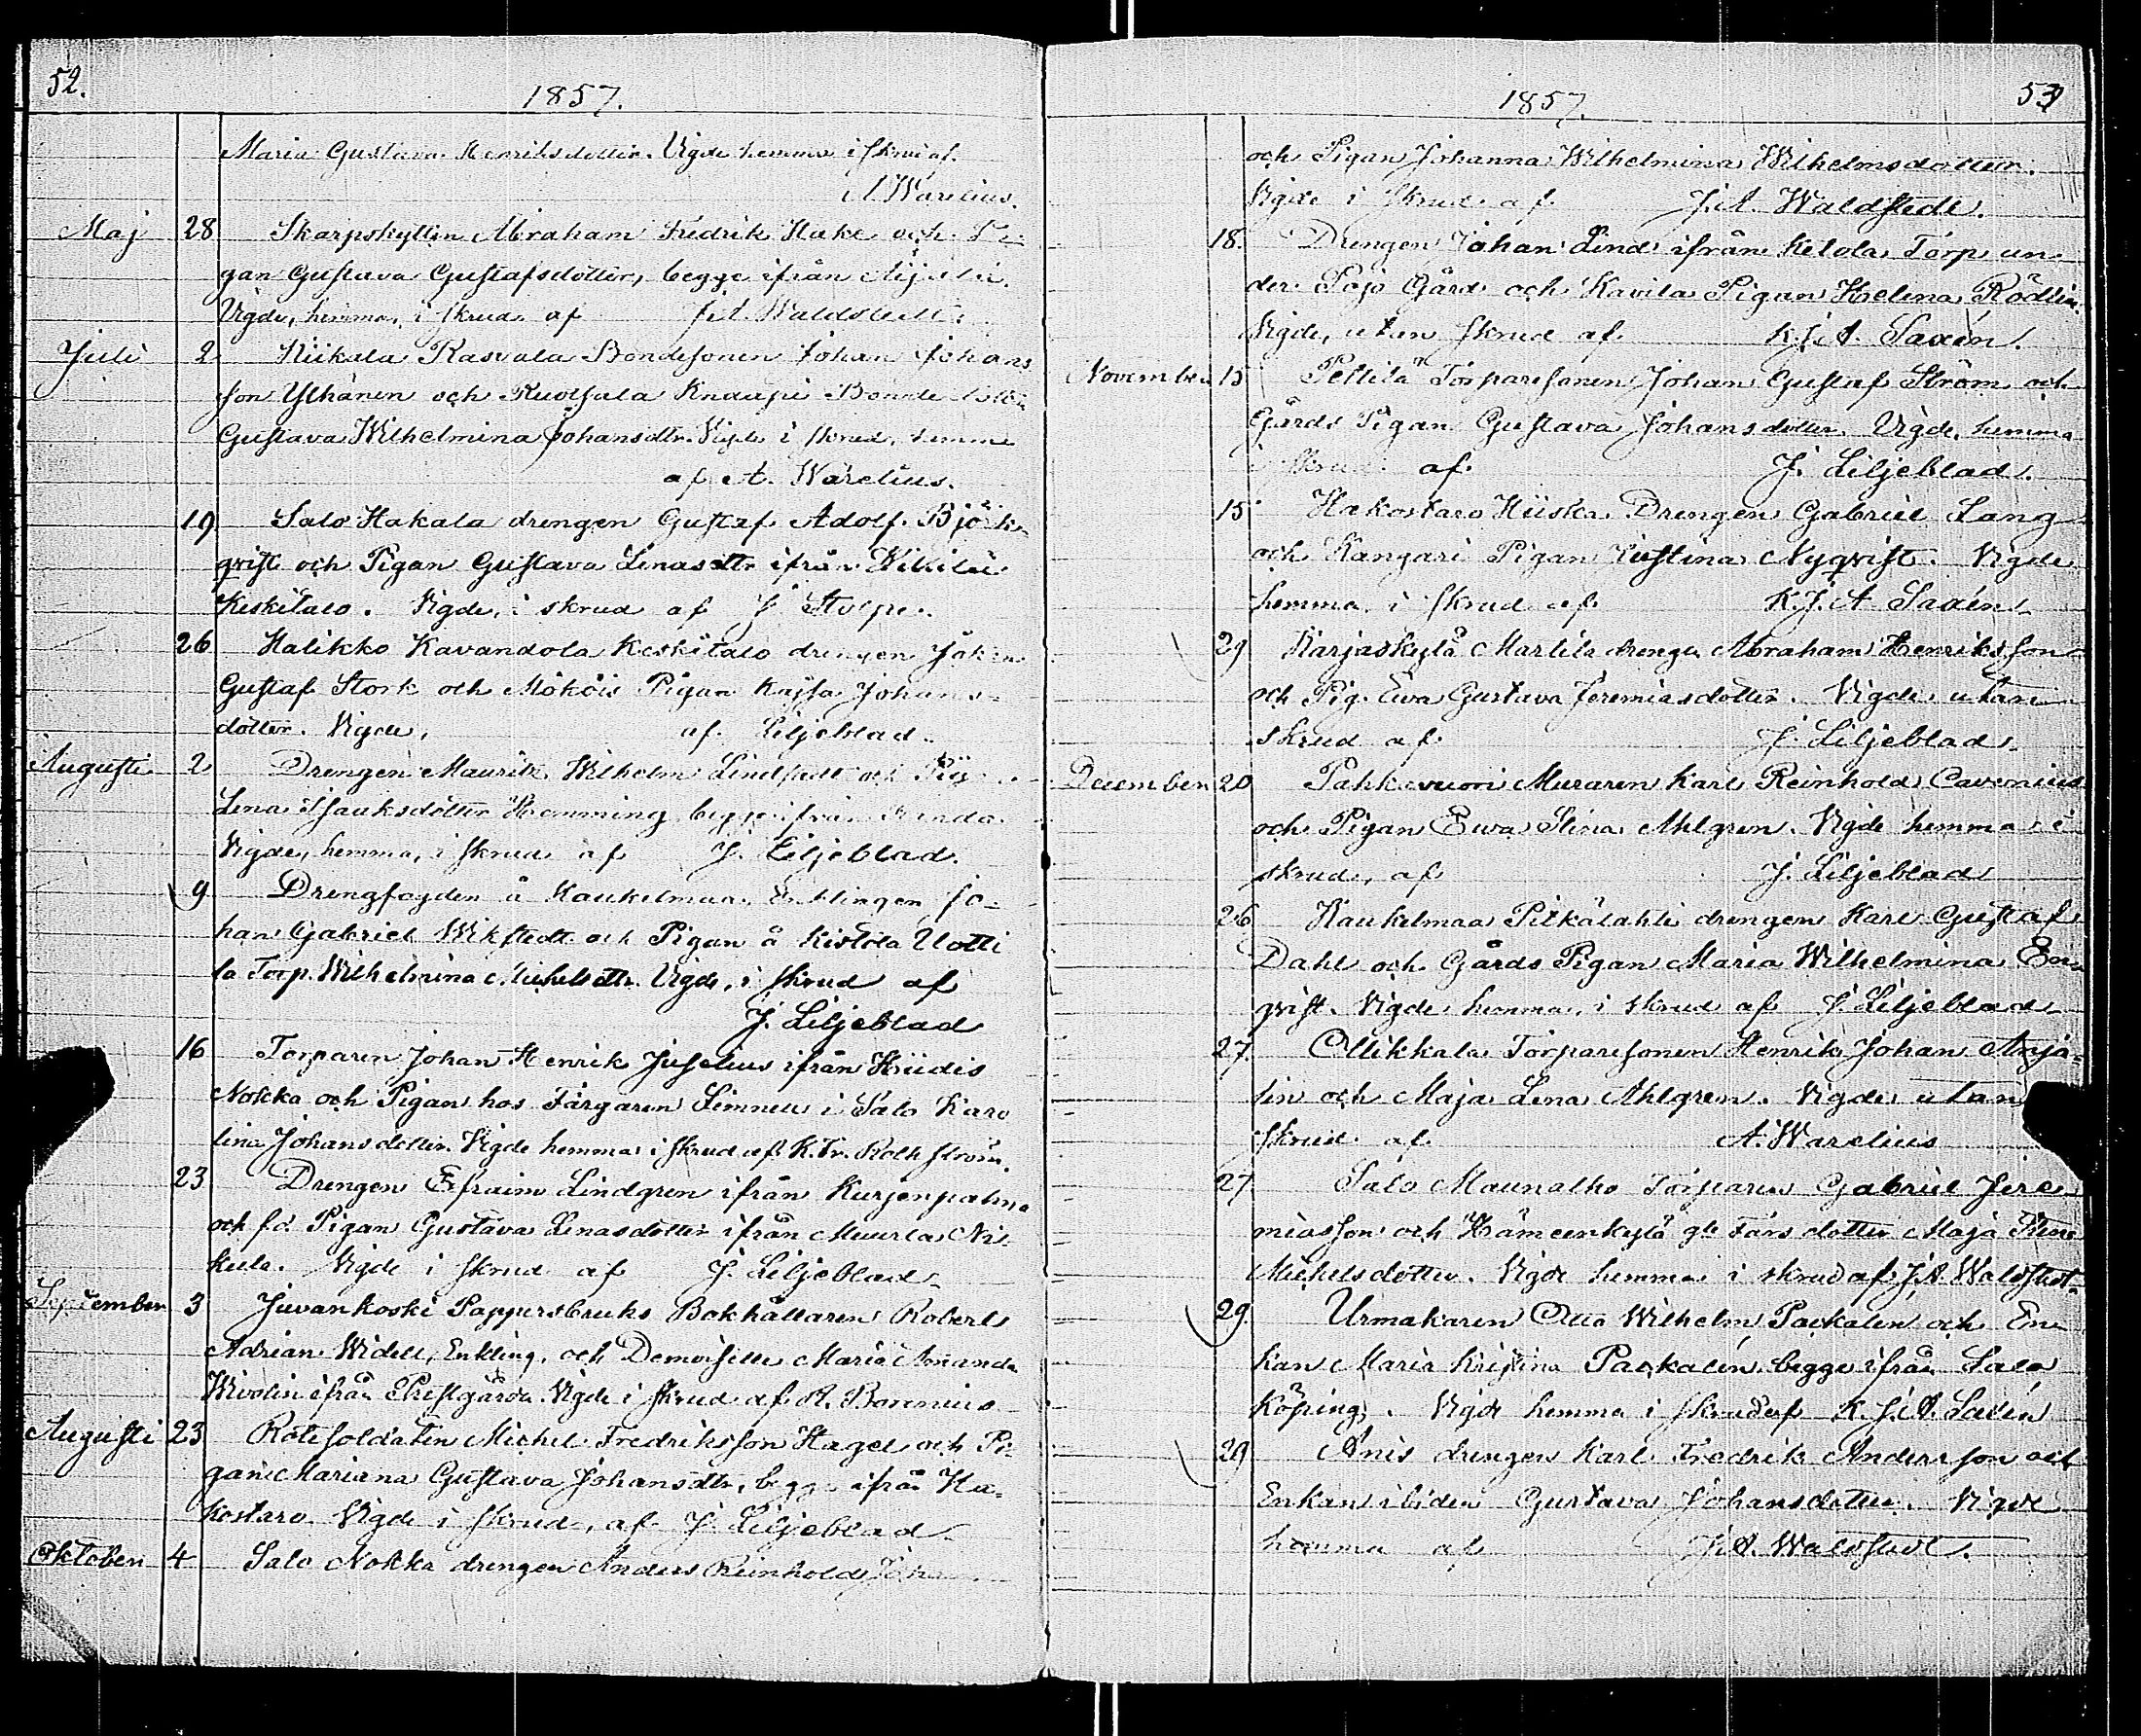 52.
1857.
Maria Gustava Henriksdotter. Vigde hemma i skrud af
A. Warelius.
Maj 28 Skarpskytten Abraham Fredrik Hake och Pi-
gan Gustava Gustafsdotter, begge ifrån
Vigde, hemma, i skrud af J. A. Waldstedt.
Juli 2 Kiikala Rasvala Bondesonen Johan Johans
son Ylhänen och Ruotsala Knaapi Bonde
Gustava Wilhelmina Johansdtr. Vigde i skrud, hemma
af A. Warelius.
19 Salo Hakala drengen Gustaf Adolf Björk-
qvist och Pigan Gustava Linasdtr ifrån
Keskitalo. Vigde, i skrud af J. Stolpe.
26 Halikko Kavandola Keskitalo drengen
Gustaf Stork och Mököis Pigan Kajsa Johans-
dotter. Vigde, af Liljeblad.
Augusti 2 Drengen Maurits Wilhelm Lindstedt och Pig
Lina Isaaksdotter Hemming begge ifrån
Vigde, hemma, i skrud af J. Liljeblad.
9 Drengfogden å Kaukelmaa Enklingen Jo-
han Gabriel Wikstedt och Pigan å Kistola Uotti
la Torp. Wilhelmina Michelsdtr. Vigde, i skrud af
J. Liljeblad
16 Torparen Johan Henrik Juselius ifrån Hiidis
Nokka och Pigan hos Färgaren Limnell i Salo Karo
lina Johansdotter. Vigde hemma i skrud af K. Fr. Rothström.
23 Drengen Efraim Lindgren ifrån Kurjenpahna
och f.d. Pigan Gustava Linasdotter ifrån Muurla Ni-
kula. Vigde i skrud af J. Liljeblad
September 3 Juvankoski Pappersbruks Bokhållaren Robert
Adrian Widell, Enkling, och Demoiselle Maria Amanda
Wivolin ifrån Prestgården. Vigde i skrud af A. Borenius
Augusti 23 Rotesoldaten Michel Fredriksson Hagel och Pi-
gan Mariana Gustava Johansdtr, begge ifrån Ha-
kostaro. Vigde i skrud, af J. Liljeblad
Oktober 4 Salo Nokka drengen Anders Reinhold
1857.
53
och Pigan Johanna Wilhelmina Wilhelmsdotter.
Vigde i skrud af J. A. Waldstedt.
18. Drengen Johan Lind ifrån Ketola Torp un-
der Pojo Gård och Kavila Pigan Helena Rödlin.
Vigde, utan skrud af K. J. A. Saxén.
November 15 Pettilä Torparesonen Johan Gustaf Ström och
Gårds Pigan Gustava Johansdotter. Vigde, hemma
i skrud af J. Liljeblad.
15 Hakostaro Hiiska Drengen Gabriel Lang
och Kangari Pigan Justina Nyqvist. Vigde
hemma i skrud af K. J. A. Saxén
29 Karjaskylä Marttila drengen Abraham Henriksson
och Pig. Ewa Gustava Jeremiasdotter. Vigde utan
skrud af J. Liljeblad
December 20 Pahkavuori Muraren Karl Reinhold Cavonius
och Pigan Ewa Stina Ahlgren. Vigde hemma i
skrud, af J. Liljeblad
26 Kaukelmaa Pitkälahti drengen Karl Gustaf
Dahl och Gårds Pigan Maria Wilhelmina
qvist. Vigde hemma, i skrud af J. Liljeblad
27. Ollikkala Torparesonen Henrik Johan
lin och Maja Lena Ahlgren. Vigde utan
skrud af A. Warelius
27. Salo Maunalho Torparen Gabriel Jere
miasson och Hämeenkylä gle Fars dotter Maja Stina
Michelsdotter. Vigde hemma i skrud af J. A. Waldstedt
29. Urmakaren Otto Wilhelm Packalen och En
kan Maria Kristina Packalén begge ifrån Salo
Köping. Vigde hemma i skrud af K. J. A. Saxén
29 Anis drengen Karl Fredrik Andersson och
Enkan ibidem Gustava Johansdotter. Vigde
hemma af J. A. Waldstedt.